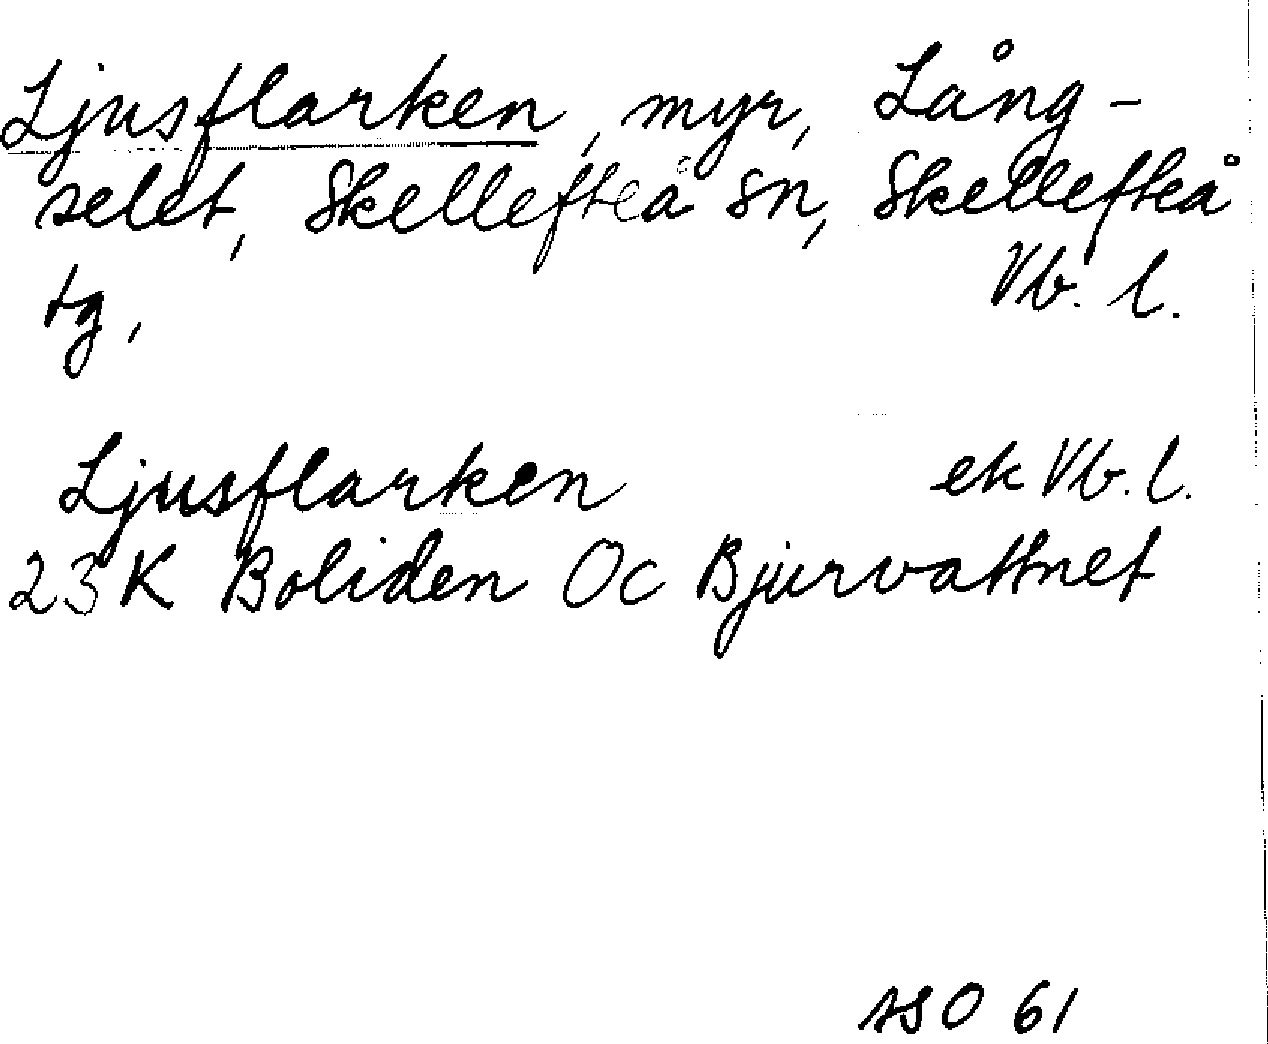 Ljusflarken, myr, Lång-
selet, Skellefteå sn, Skellefteå
tg, Vb. l.
Ljusflarken ek Vb. l.
23 K Boliden Oc Bjurvattnet
ASO 61